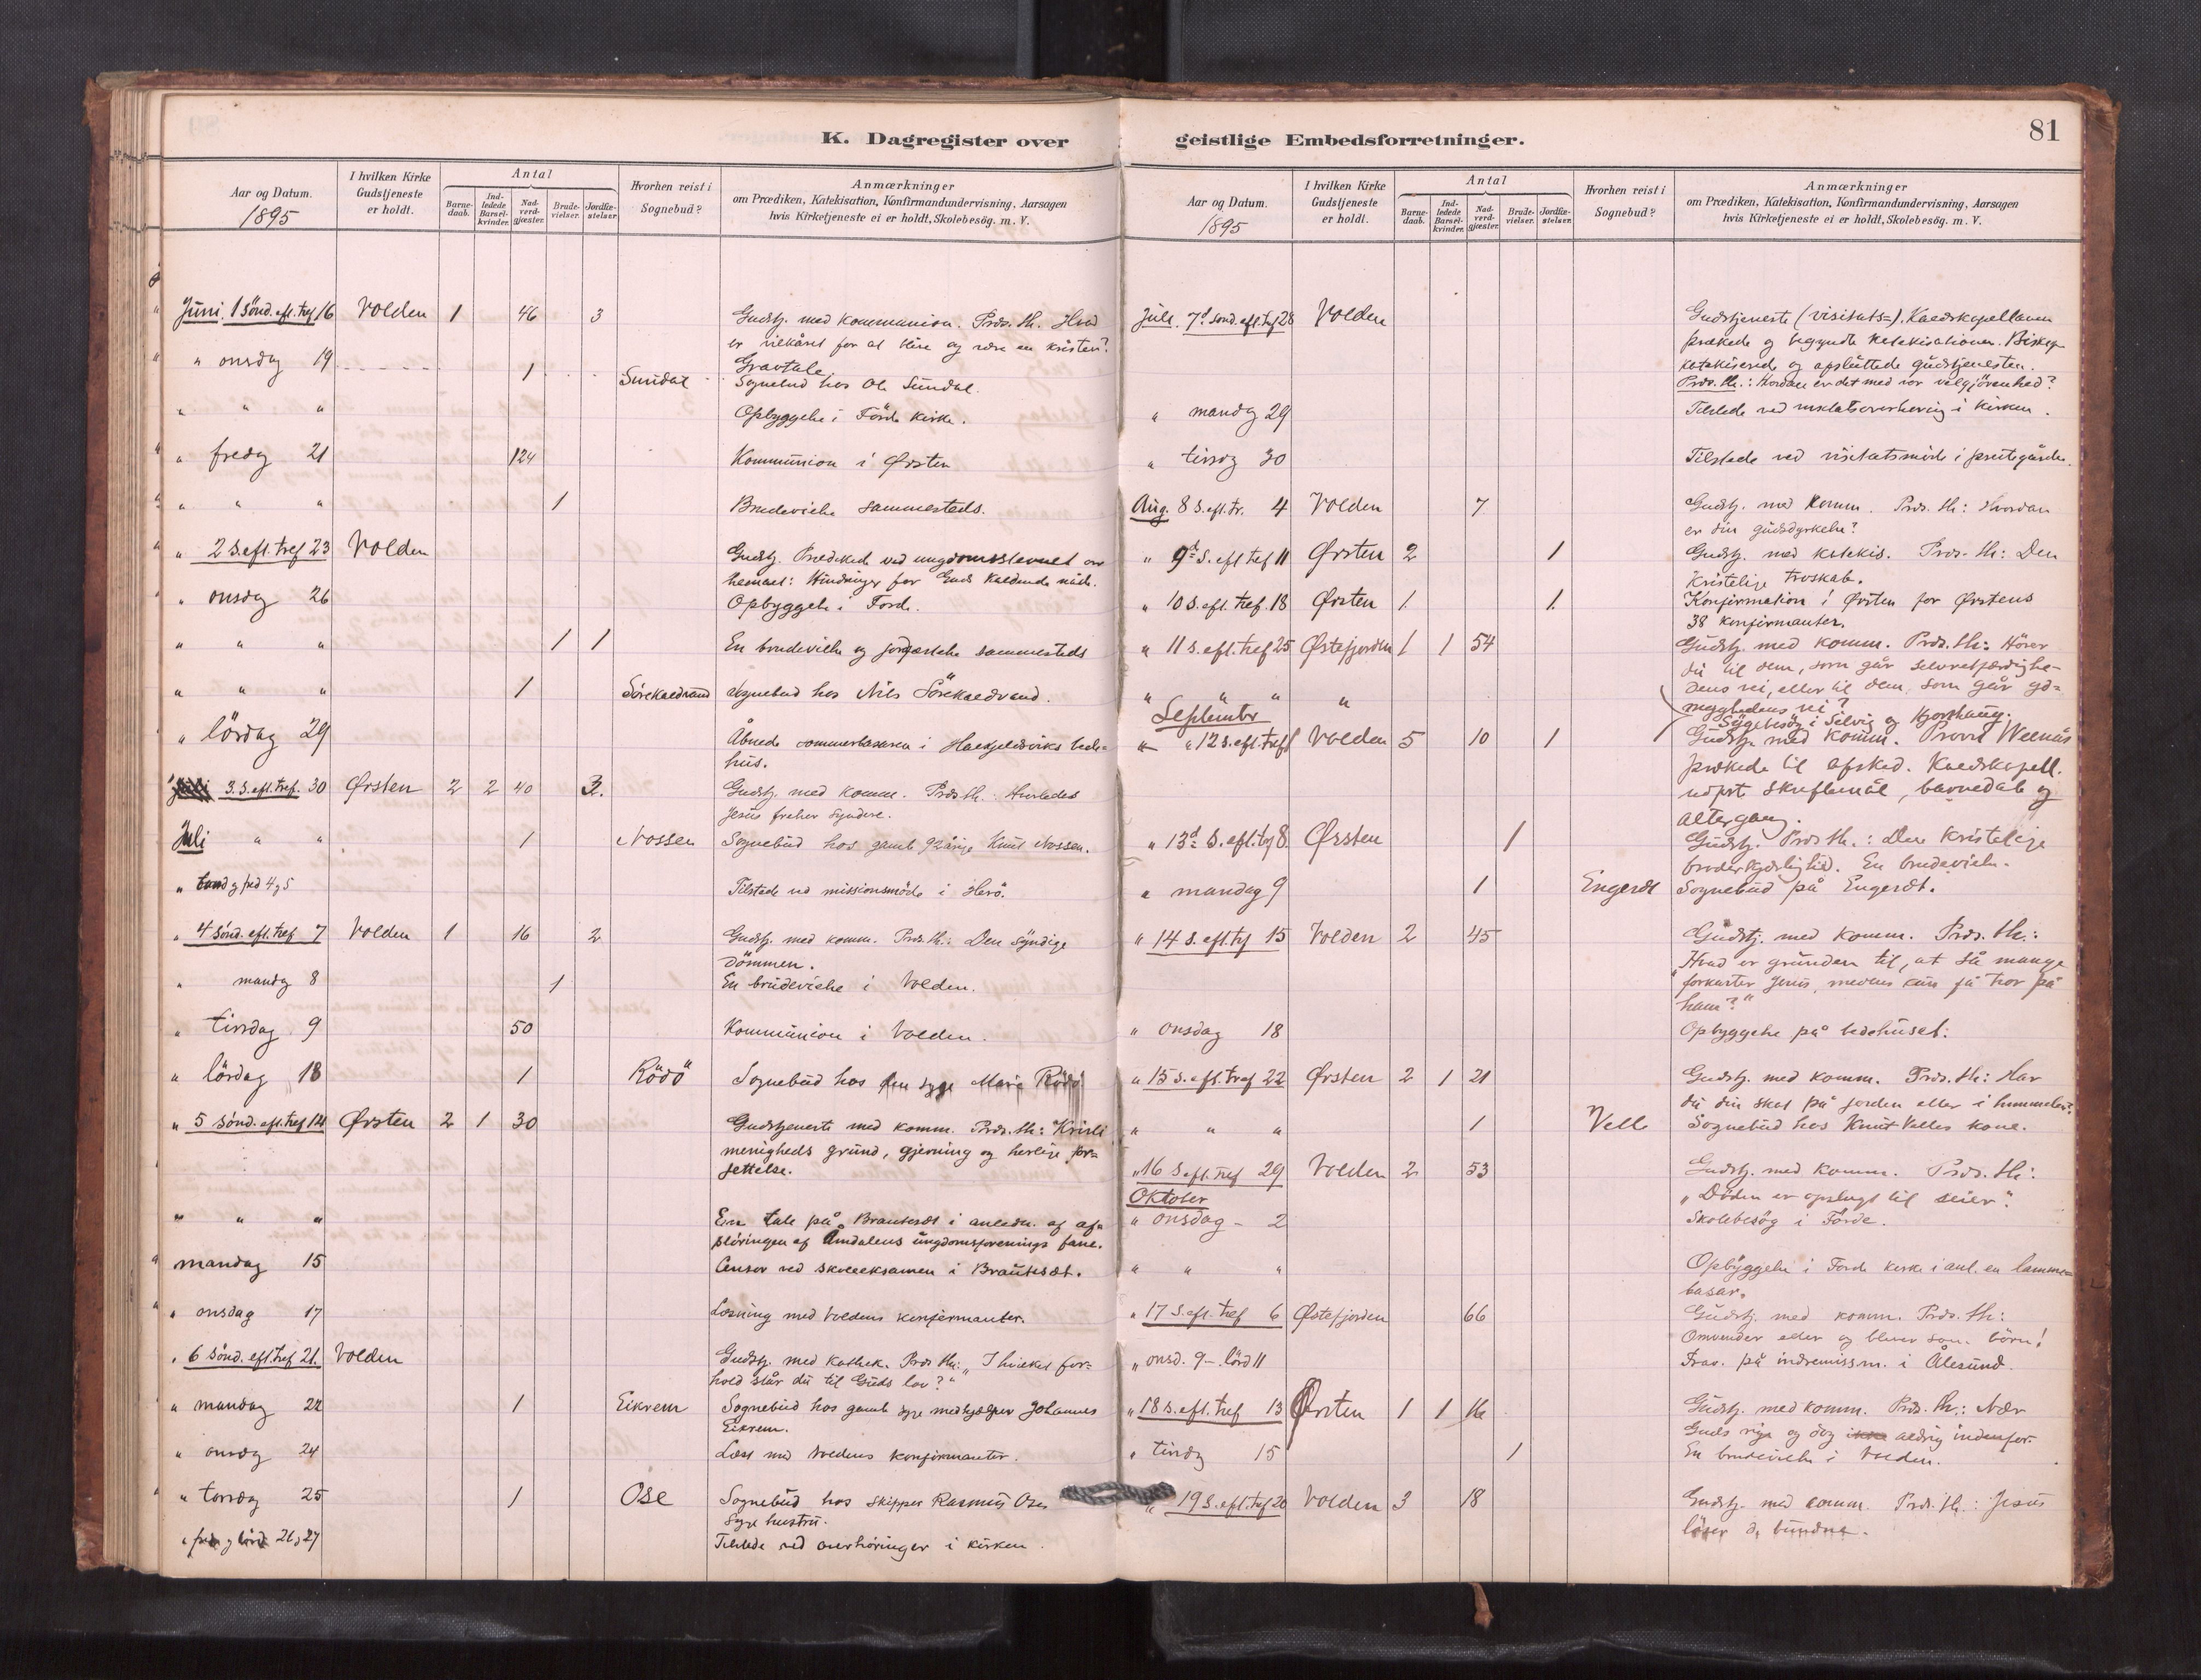 K. Dagregister over
Aar og Datum. 1895
I hvilken Kirke Gudstjeneste er holdt.
Antal
Barnedaab. Indledede Barselkvinder. Nadverdgjæster. Brudevielser. Jordfæstelser.
Hvorhen reist i Sognebud?
Anmærkninger
om Prædiken, Katekisation, Konfirmandundervisning, Aarsagen
hvis Kirketjeneste ei er holdt, Skolebesög. m. V.
Juni. 1 sönd. eft. tref 16 Volden 1 46 3 Gudstj. med kommunion. Præd. th. Hvad
er vilkåret for at blive og være en kristen?
Gravtale.
" onsdag 19 1 Sundal Sognebud hos Ole Sundal.
" " " Opbyggelse i Förde kirke.
" fredag 21 124 Kommunion i Ørsten
" " " 1 Brudevielse sammesteds.
" 2 S. eft. tref 23 Volden Gudstj. Prædiked ved ungdomsstevnet
Hindringer for Guds kaldende nåde.
" onsdag 26 Opbyggelse i Förde.
" " " 1 1 En brudevielse og jordfæstelse sammesteds
" " " 1 Sörekaldvand Sognebud hos Nils Sörekaldvand.
" lördag 29 Åbnede sommerbasaren i bede-
hus.
3. S. eft. tref. 30 Ørsten 2 2 40 3. Gudstj. med komm. Præd. th. Hvorledes
Jesus frelser syndere.
Juli " " 1 Nossen Sognebud hos gamle 92årige Knut Nossen.
" torsd og fred 4 og 5 Tilstede ved missionsmöde i Herö.
" 4 sönd. eft. tref 7 Volden 1 16 2 Gudstj. med komm. Præd. th.: Den syndige
dömmen.
" mandag 8 1 En brudevielse i Volden.
" tirsdag 9 50 Kommunion i Volden.
" lördag 13 1 Rödö Sognebud hos den syge Marie Rödö
" 5 sönd. eft. tref 14 Ørsten 2 1 30 Gudstjeneste med komm. Præd. th: Kristi
menigheds grund, gjerning og herlige for-
jettelse.
" " " En tale på Brautesæt i anledn. af af-
slöringen af Åmdalens ungdomsforenings fane.
" mandag 15 Censor ved skoleeksamen i Brautesæt.
" onsdag 17 Læsning med Voldens konfirmanter.
" 6 sönd. eft. tref 21. Volden Gudstj. med kathek. Præd th: "I hvilket for-
hold står du til Guds lov?"
" mandag 22 1 Eikrem Sognebud hos gamle syge medhjælper Johannes
Eikrem.
" onsdag 24 Læst med Voldens konfirmanter.
" torsdag 25 1 Ose Sognebud hos skipper Rasmus Oses
syge hustru.
" fred og lörd 26 og 27 Tilstede ved overhöringer i kirken.
geistlige Embedsforretninger.
81
Aar og Datum. 1895
I hvilken Kirke Gudstjeneste er holdt.
Antal
Barnedaab. Indledede Barselkvinder. Nadverdgjæster. Brudevielser. Jordfæstelser.
Hvorhen reist i Sognebud?
Anmærkninger
om Prædiken, Katekisation, Konfirmandundervisning, Aarsagen
hvis Kirketjeneste ei er holdt, Skolebesög. m. V.
Juli. 7d sönd. eft tref 28 Volden Gudstjeneste (visitats=). Kaldskapellanen
prækede og begyndte katekisationen. Biskop
katekiserede og afsluttede gudstjenesten.
Præd. th.: Hordan er det med vor velgjörenhed?
" mandag 29 Tilstede ved visitatsoverhöring i kirken.
" tirsdag 30 Tilstede ved visitatsmöde i prestegården.
Aug. 8 S. eft. tr. 4 Volden 7 Gudstj. med komm. Præd. th: Hvordan
er din gudsdyrkelse?
" 9d S. eft tref 11 Ørsten 2 1 Gudstj. med katekis. Præd. th: Den
kristelige troskab.
" 10 S. eft. tref. 18 Ørsten 1 1 Konfirmation i Ørsten for Ørstens
38 konfirmanter.
" 11 S. eft. tref 25 Østefjorden 1 1 54 Gudstj. med komm. Præd. th: Hörer
du til dem, som går selvretfærdighe-
dens vei, eller til dem, som går yd-
myghedens vei?
" " " " Sygebesög i Selvig og
September
" 12 S. eft. tref 1 Volden 5 10 1 Gudstj. med komm. Provst
prækede til afsked. Kaldskapell.
udfört skriftemål, barnedåb og
altergang.
" 13d S. eft. tref 8. Ørsten 1 Gudstj. Præd th.: Den kristelige
broderkjærlighed. En brudevielse.
" mandag 9 1 Engesæt Sognebud på Engesæt.
" 14 S. eft. tref 15 Volden 2 45 Gudstj. med komm. Præd. th.:
Hvad er grunden til, at så mange
forkaster Jesus, medens kun få tror på
ham?"
" onsdag 18 Opbyggelse på bedehuset.
" 15 S. eft. tref 22 Ørsten 2 1 21 Gudstj. med komm. Præd. th: Har
du din skat på jorden eller i himmelen?
" " " 1 Velle Sognebud hos Knut Velles kone.
" 16 S eft. tref 29 Volden 2 53 Gudstj. med komm. Præd. th:
"Döden er opslugt til seier."
Oktober
" onsdag - 2 Skolebesög i Förde.
" " " Opbyggelse i Förde kirke i anl. en lamme-
basar.
" 17 S. eft. tref 6 Østefjorden 66 Gudstj. med komm. Præd. th:
Omvender eder og bliver som börn!
" onsd. 9 - lörd 11 Frav. på indremissm. i Ålesund.
" 18 S. eft. tref 13 Ørsten 1 1 16 Gudstj. med komm. Præd. th.: Nær
Guds rige og dog aldrig indenfor.
" tirsdag 15 1 En brudevielse i Volden.
" 19 S. eft. tref 20 Volden 3 18 Gudstj. med komm. Præd. th.: Jesus
löser de bundne.